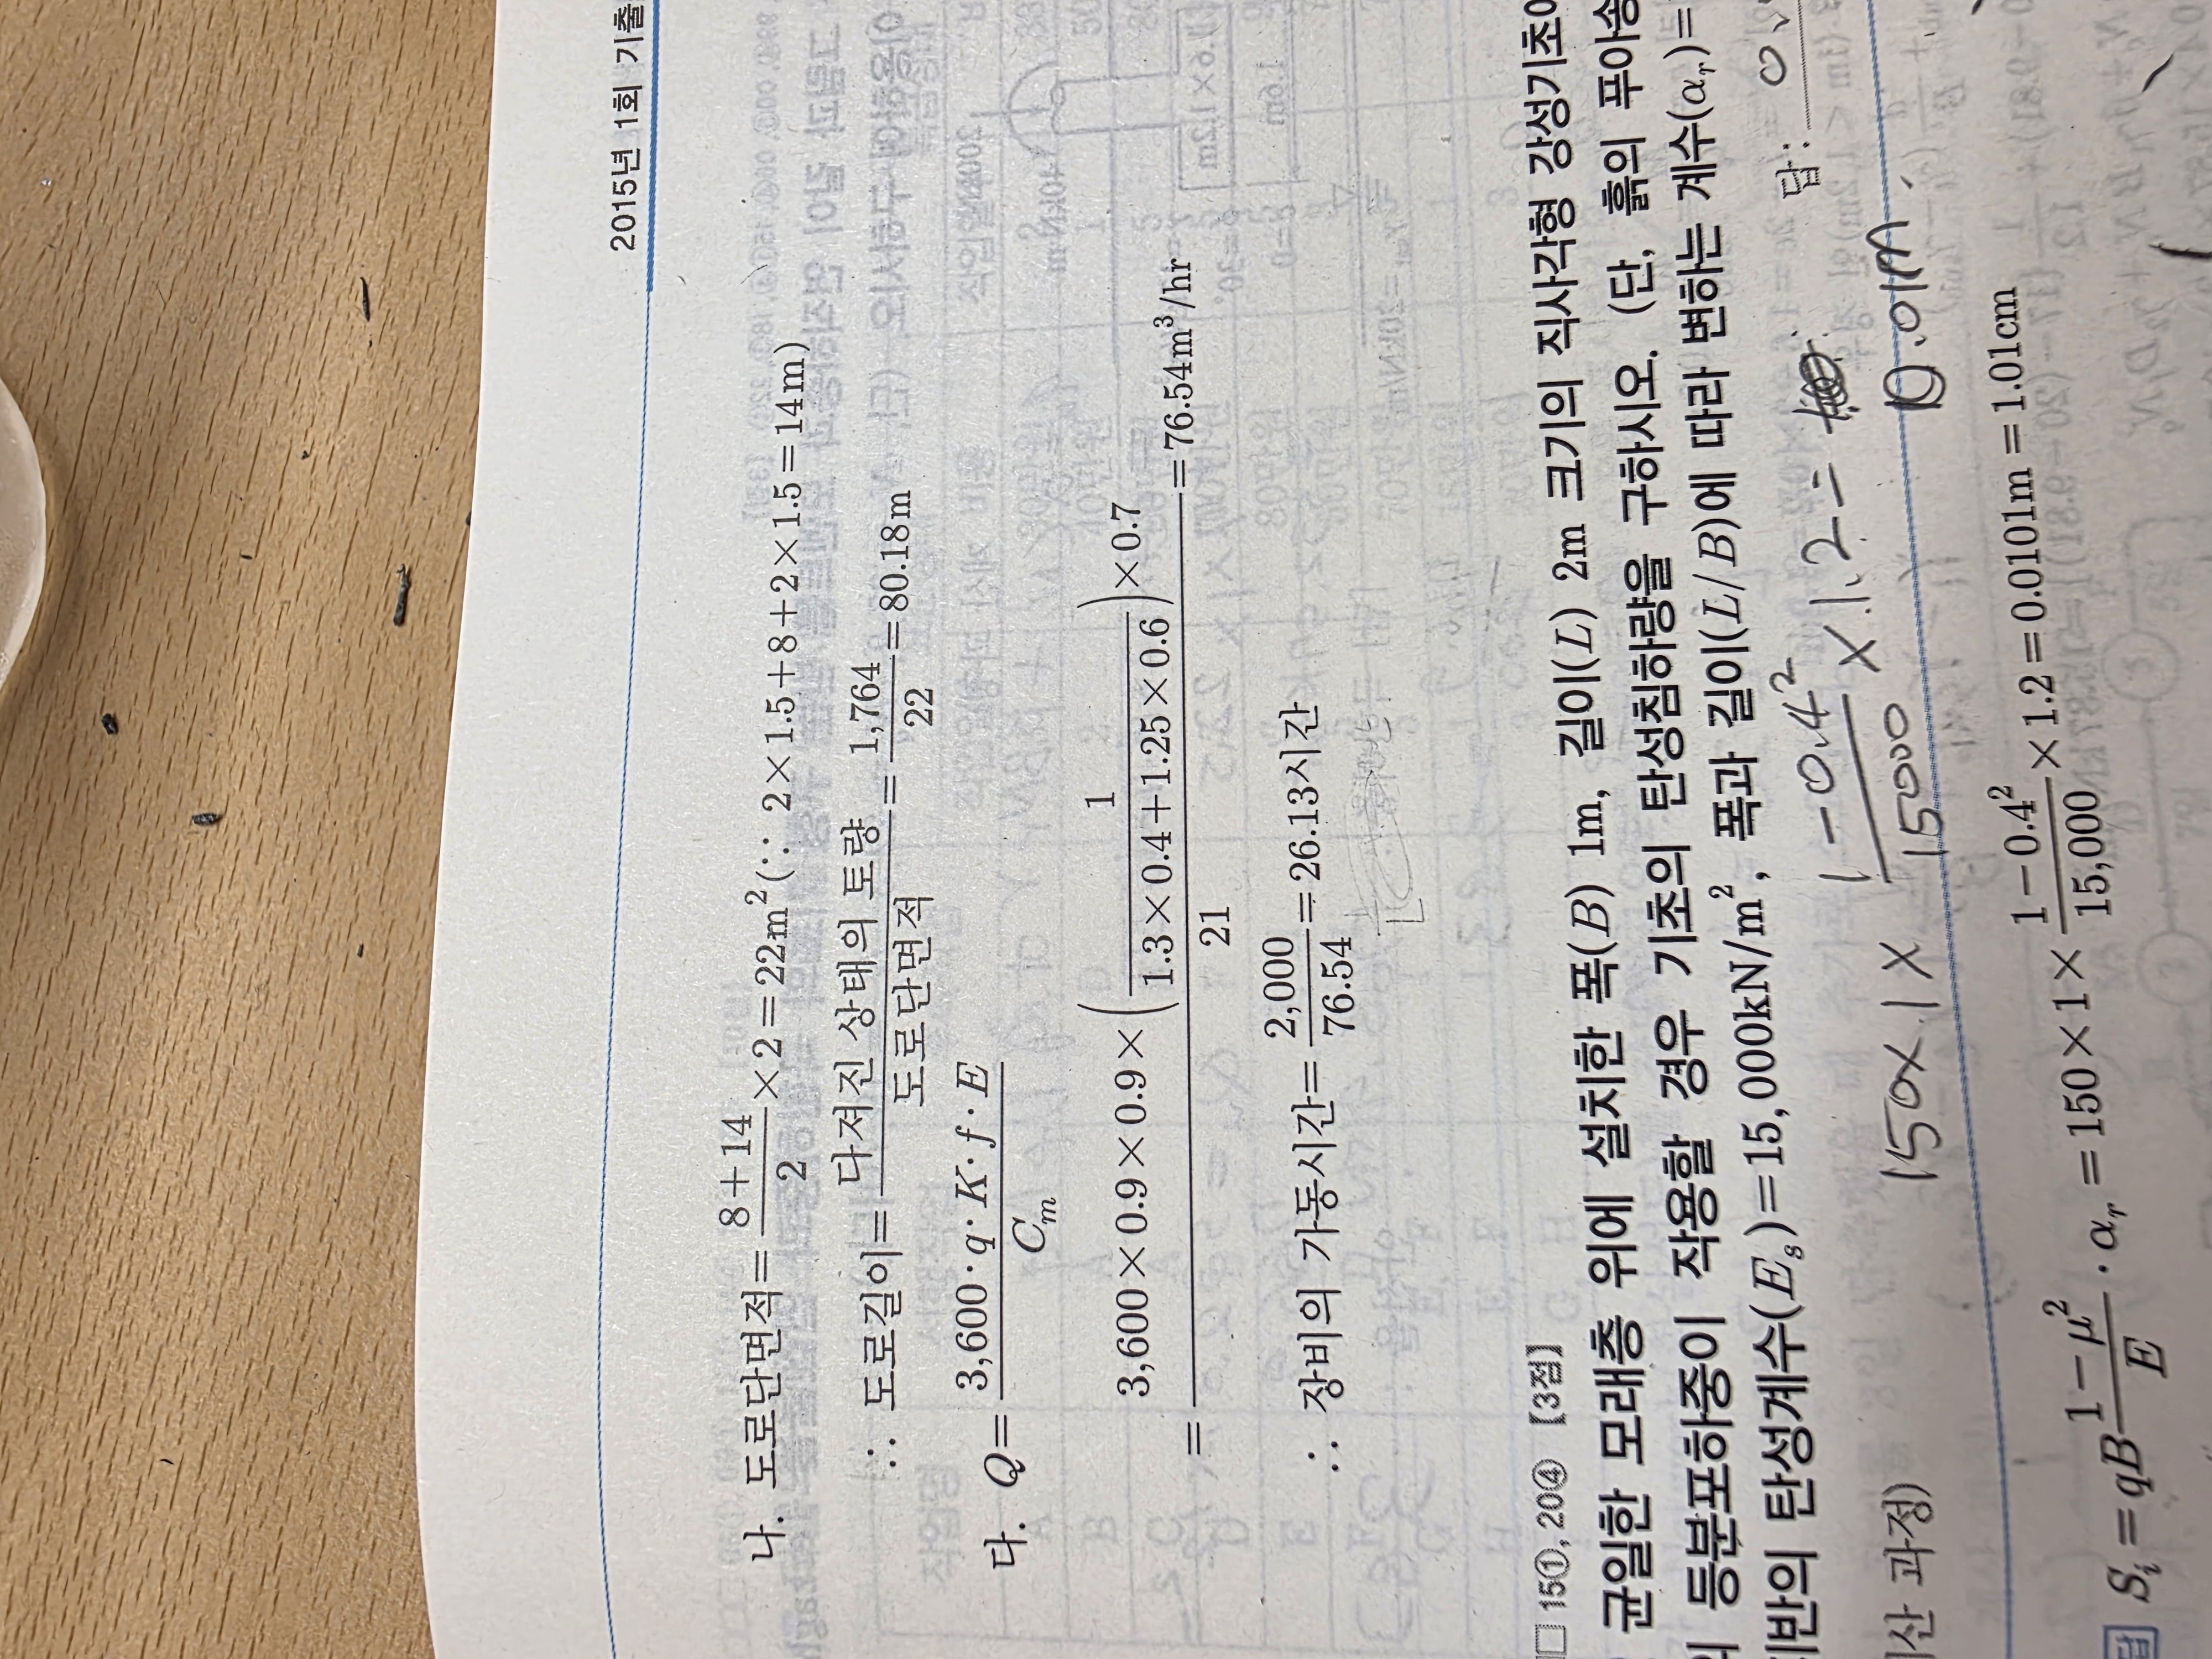 2015년 1회 기출
나. 도로단면적 = \frac{8+14}{2} × 2 = 22m² (∵ 2×1.5+8+2×1.5=14m)
∴ 도로길이 = \frac{다져진 상태의 토량}{도로단면적} = \frac{1,764}{22} = 80.18m
다. Q = \frac{3,600·q·K·f·E}{C_m}
= \frac{3,600×0.9×0.9×(\frac{1}{1.3×0.4+1.25×0.6})×0.7}{21} = 76.54m³/hr
∴ 장비의 가동시간 = \frac{2,000}{76.54} = 26.13시간
15①, 20④ [3점]
균일한 모래층 위에 설치한 폭(B) 1m, 길이(L) 2m 크기의 직사각형 강성기초
등분포하중이 작용할 경우 기초의 탄성침하량을 구하시오. (단, 흙의 푸아송
지반의 탄성계수(E_s)=15,000kN/m², 폭과 길이(L/B)에 따라 변하는 계수(α_r)=
계산 과정)
150×1× \frac{1-0.4²}{15000} ×1.2=
0.01m.
답:
S_i = qB \frac{1-μ²}{E}·α_r = 150×1×\frac{1-0.4²}{15,000}×1.2 = 0.0101m = 1.01cm